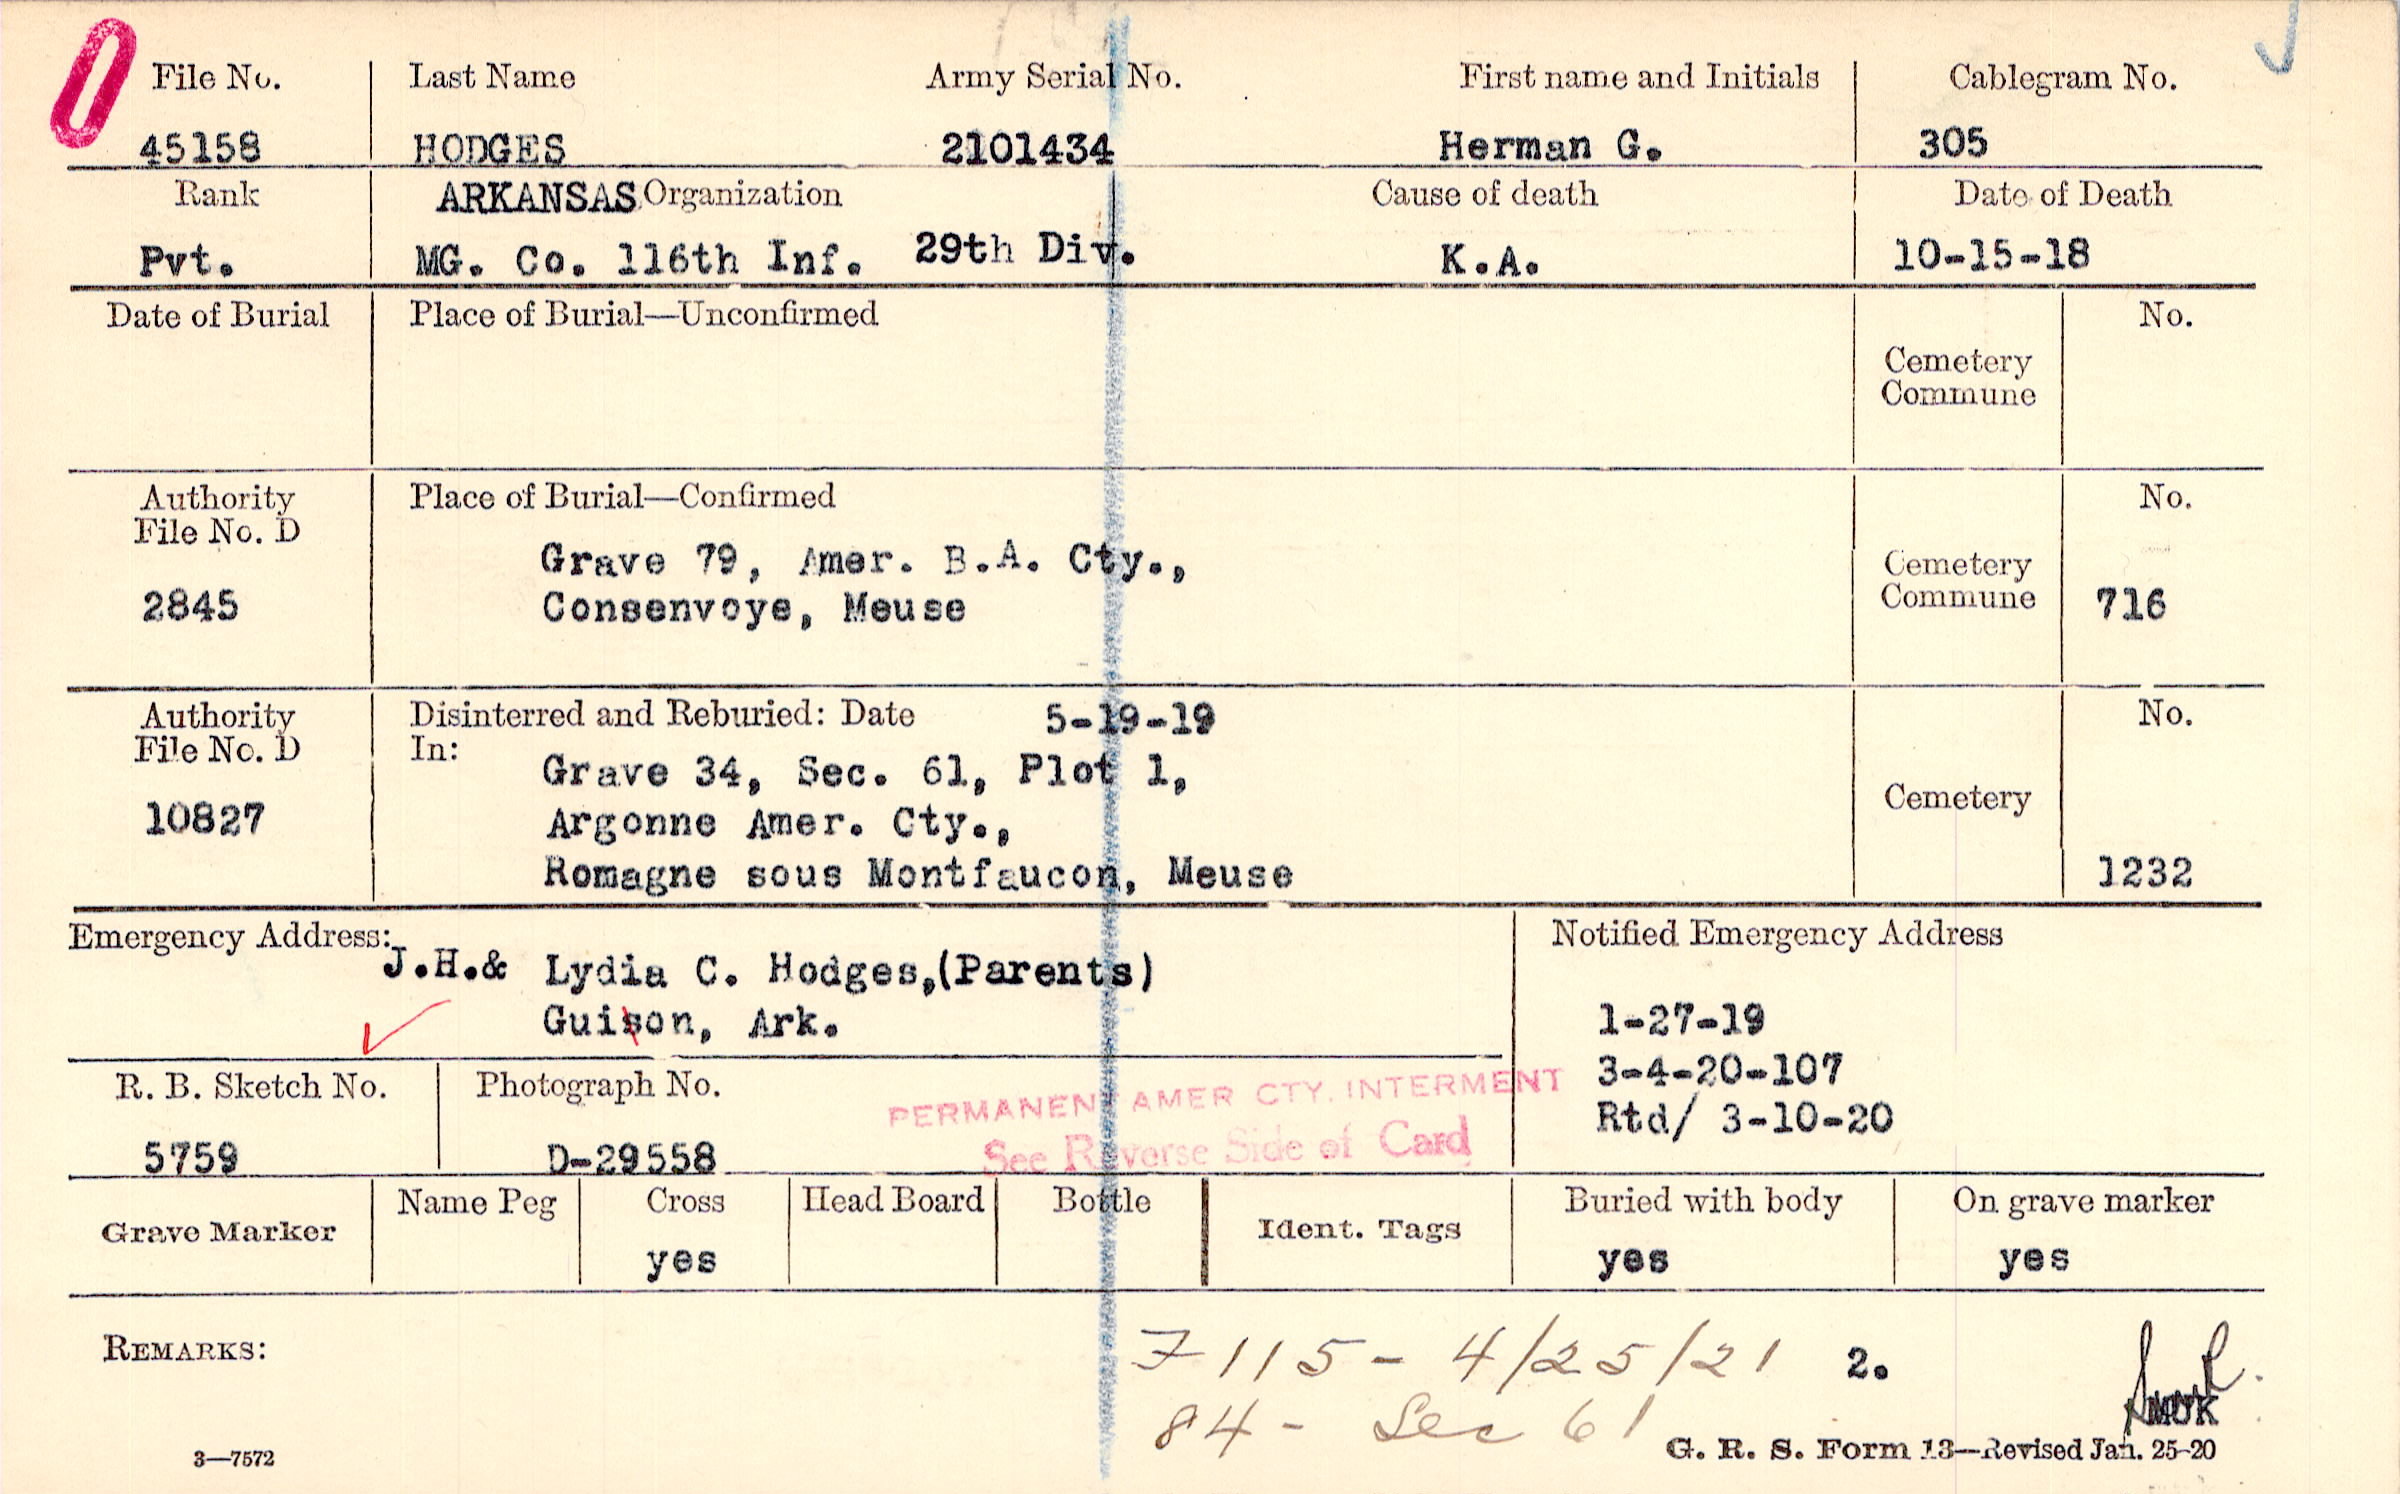 File No. Last Name Army Serial No. First name and Initials Cablegram No.
45158 HODGES 2101434 Herman G. 305
Rank ARKANSAS Organization Cause of death Date of Death
Pvt. MG. Co. 116th Inf. 29th Div. K.A. 10-15-18
Date of Burial Place of Burial—Unconfirmed No.
Cemetery
Commune
Authority Place of Burial—Confirmed No.
File No. D
Grave 79, Amer. B.A. Cty., Cemetery
2845 Consenvoye, Meuse Commune 716
Authority Disinterred and Reburied: Date 5-19-19 No.
File No. D In:
Grave 34, Sec. 61, Plot 1,
10827 Argonne Amer. Cty., Cemetery
Romagne sous Montfaucon, Meuse 1232
Emergency Address: Notified Emergency Address
J.H.& Lydia C. Hodges,(Parents)
Guison, Ark. 1-27-19
3-4-20-107
Rtd/ 3-10-20
R. B. Sketch No. Photograph No.
PERMANENT AMER CTY. INTERMENT
5759 D-29558 See Reverse Side of Card
Grave Marker Name Peg Cross Head Board Bottle Ident. Tags Buried with body On grave marker
yes yes yes
REMARKS: 7115- 4/25/21 2.
84- Sec 61
3—7572 G. R. S. Form 13—Revised Jan. 25-20